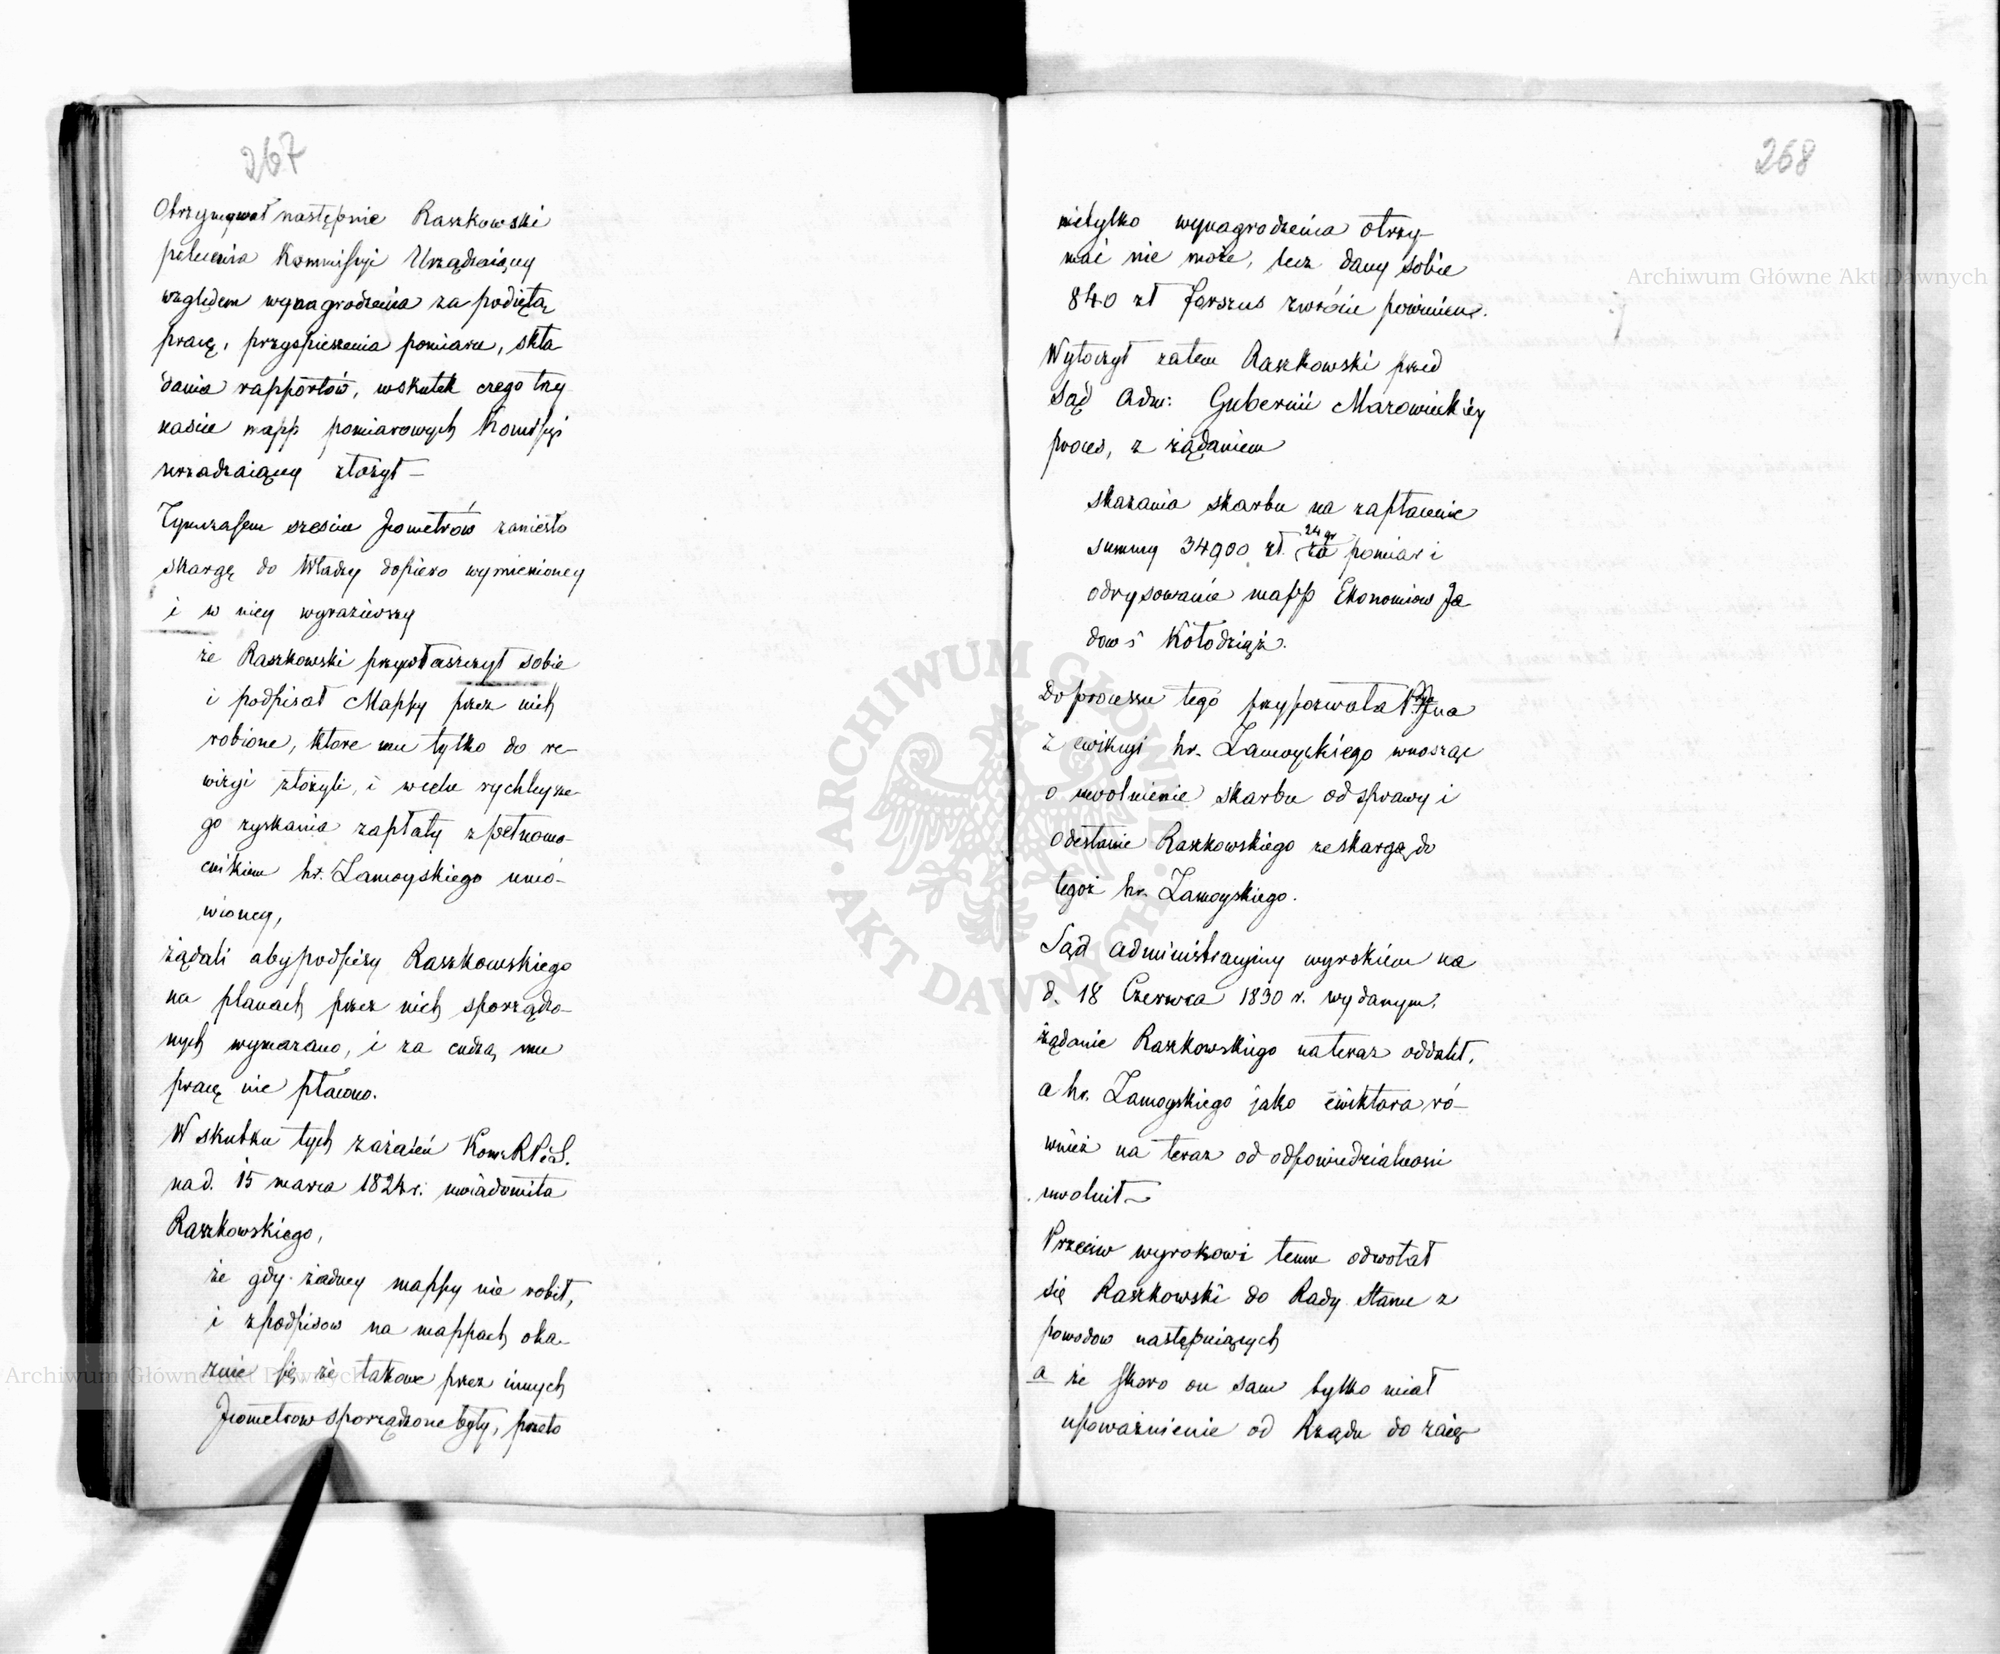 267
Otrzymywał następnie Raszkowski
polecenia Kommissyi Urządzaiącey
względem wynagrodzenia za podiętą
pracę, przyspieszenia pomiaru, skła
dania rapportów, wskutek czego trzy
naście mapp pomiarowych Komissyi
urządzaiącey złożył –
Tymczasem sześciu Jeometrów zaniesło
skargę do Władzy dopiero wymienioney
i w niey wyraziwszy
że Raszkowski przywłaszczył sobie
i podpisał Mappy przez nich
robione, które mu tylko do re-
wizyi złożyli, i w celu rychleysze-
go zyskania zapłaty z pełnomo-
cnikiem hr. Zamoyskiego umó-
wioney,
żądali aby podpisy Raszkowskiego
na planach przez nich sporządzo-
nych wymazano, i za cudzą mu
pracę nie płacono.
W skutku tych zażaleń Kom: R P. i S.
na d. 15 marca 1824 r. uwiadomiła
Raszkowskiego,
że gdy żadney mappy nie robił,
i z podpisow na mappach oka-
zuie się że takowe przez innych
Jeometrow sporządzone były, przeto
268
nietylko wynagrodzenia otrzy-
mać nie może, lecz dany sobie
840 zł forszus zwrócić powinien.
Wytoczył zatem Raszkowski przed
Sąd Adm: Gubernii Mazowieckiey
proces, z żądaniem
skazania skarbu na zapłacenie
24 gr
summy 34900 zł. za pomiar i
odrysowanie mapp Ekonomiow Ja
dow i Kołodziąż.
Do processu tego przypozwała
z ewikcyi hr. Zamoyskiego wnosząc
o uwolnienie skarbu od sprawy i
odesłanie Raszkowskiego ze skargą do
tegoż hr. Zamoyskiego.
Sąd administracyiny wyrokiem na
d. 18 Czerwca 1830 r. wydanym,
żądanie Raszkowskiego na teraz oddalił,
a hr. Zamoyskiego jako ewiktora ró-
wnież na teraz od odpowiedzialności
uwolnił –
Przeciw wyrokowi temu odwołał
się Raszkowski do Rady Stanu z
powodow następuiących
a że skoro on sam tylko miał
upoważnienie od Rządu do zaię-
Archiwum Główne Akt Dawnych
Archiwum Główne Akt Dawnych
ARCHIWUM GŁÓWNE AKT DAWNYCH